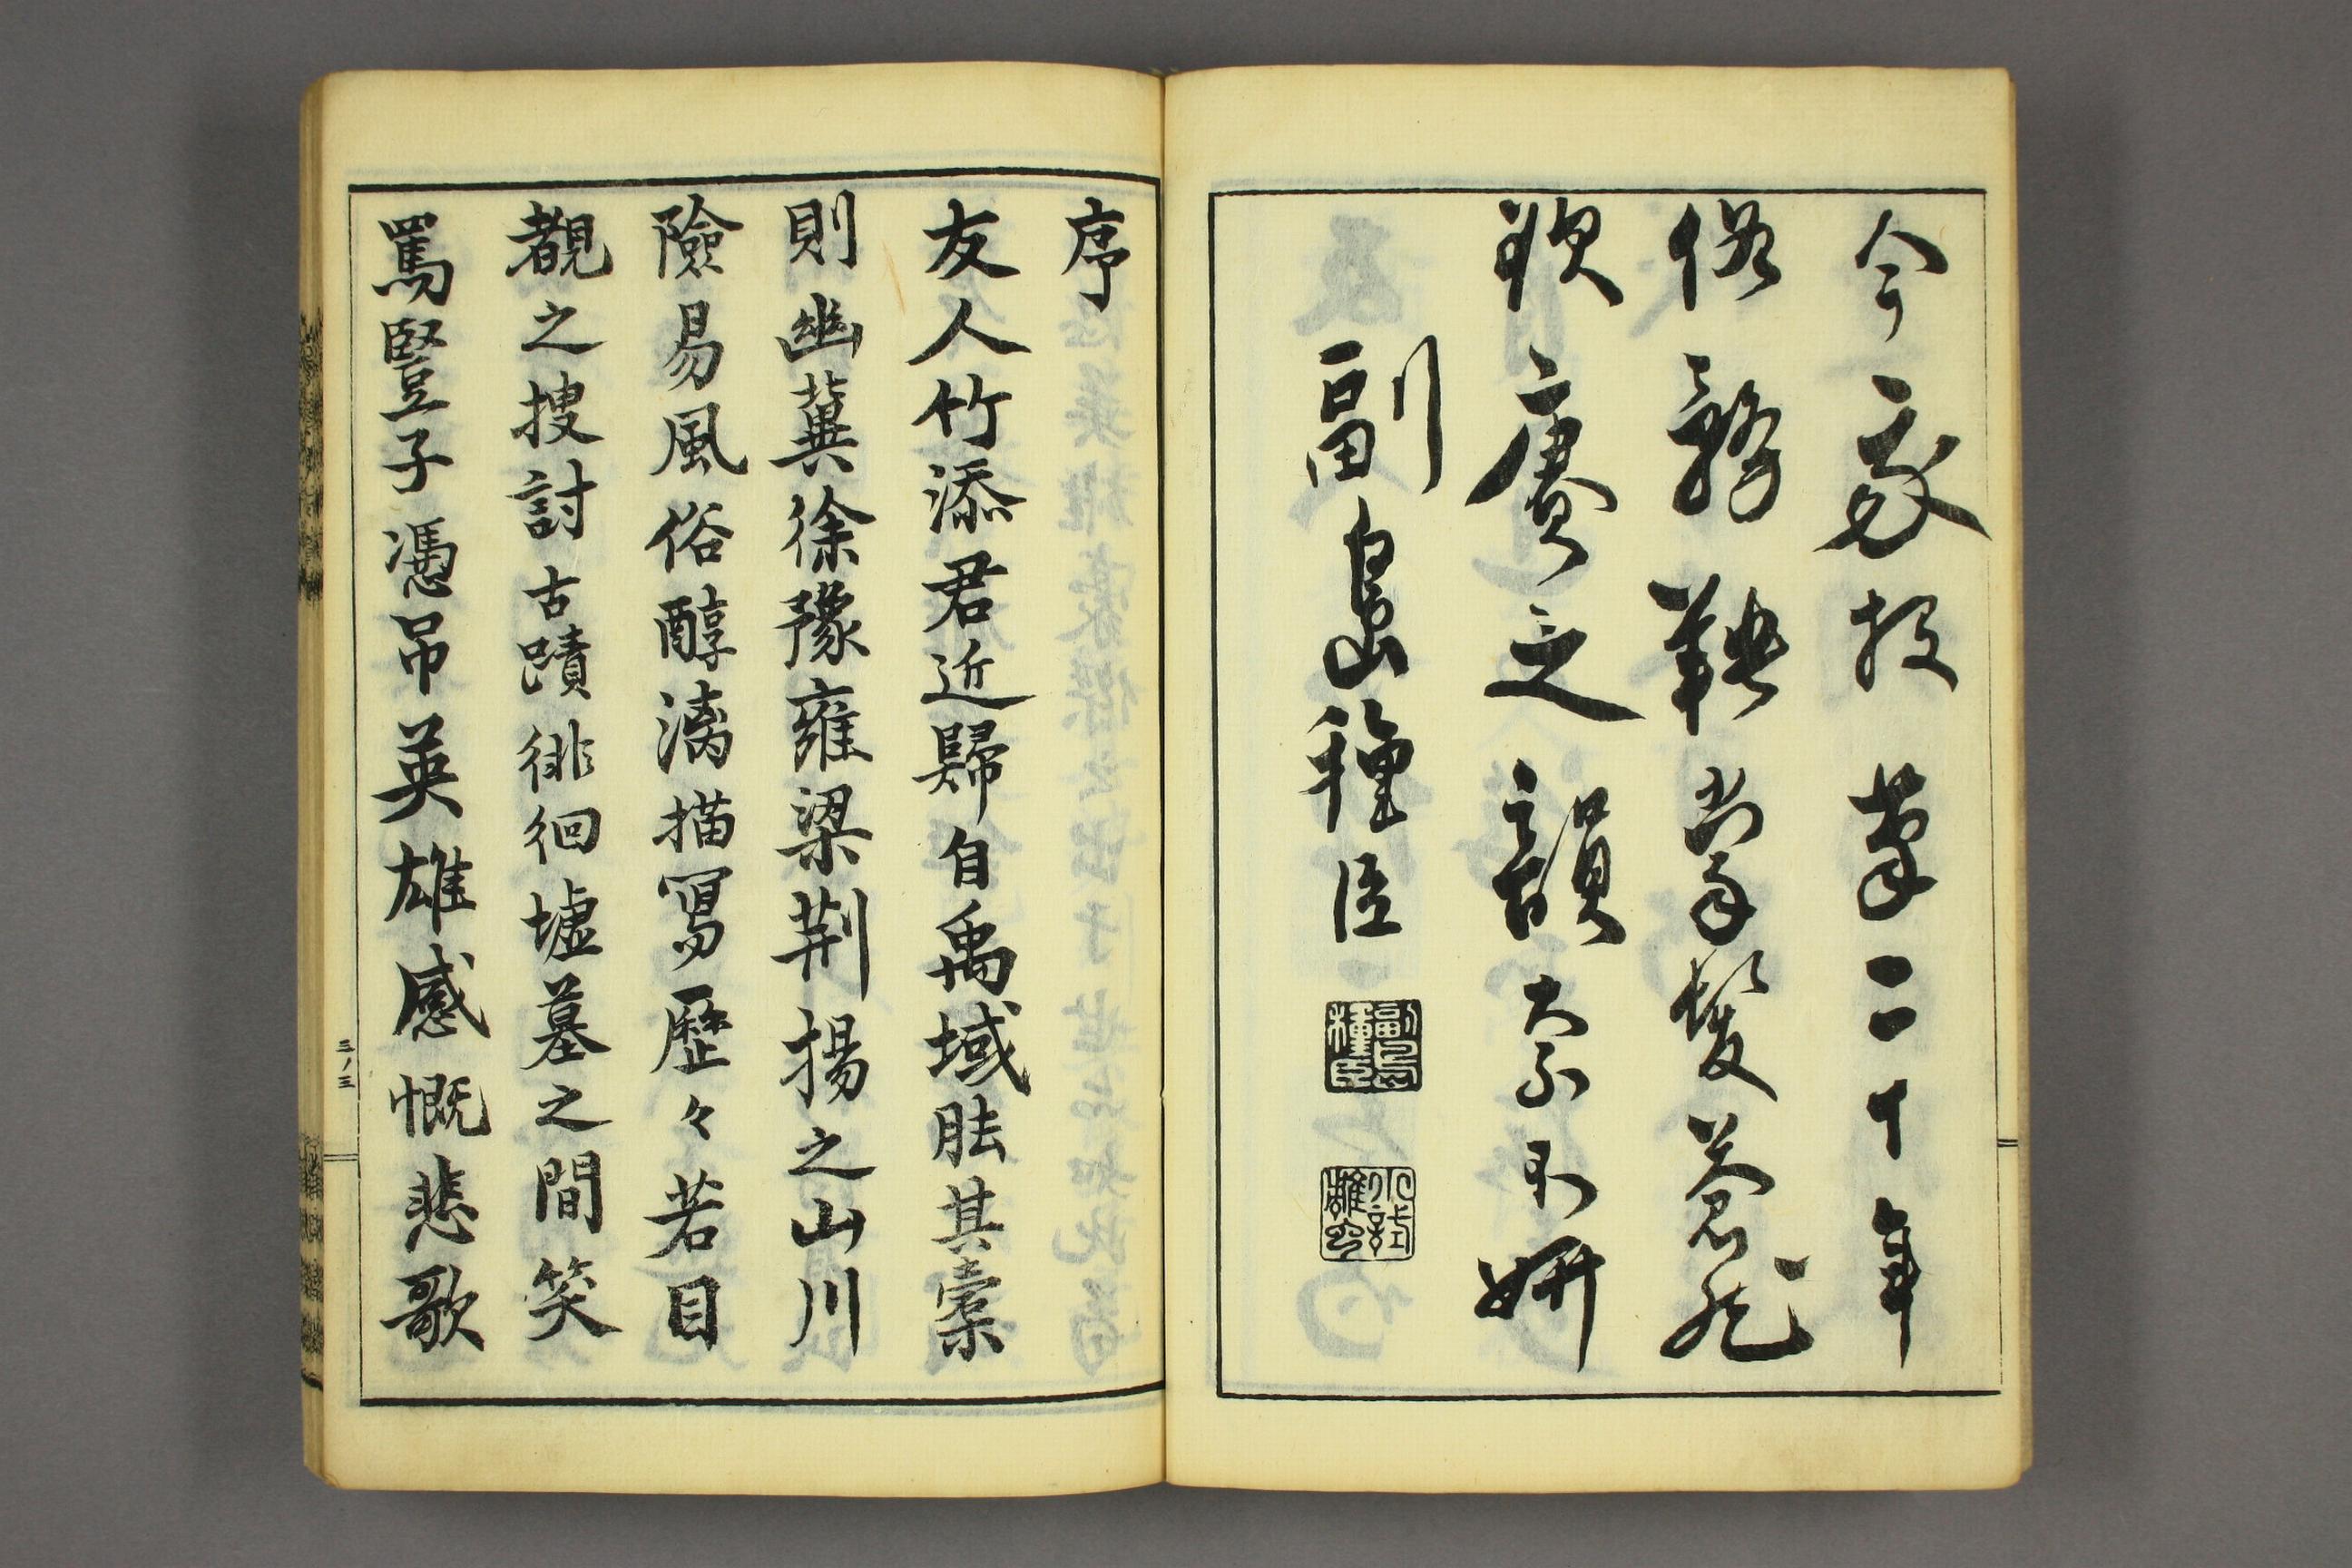 今我投筆二十年
俗務鞅掌鬢蒼然
欲賡之韻大不妍
副島種臣
副島種臣
序
友人竹添君近歸自禹域胠其橐
則幽冀徐豫雍梁荊揚之山川
險易風俗醇漓描寫歷々若目
覩之搜討古蹟徘徊墟墓之間笑
罵豎子憑吊英雄感慨悲歌
三ノ三